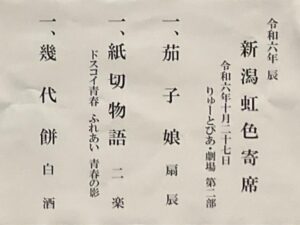 令和六年 辰
新潟虹色寄席
令和六年十月二十七日
りゅーとぴあ・劇場 第二部
一、茄子娘 扇辰
一、紙切物語 二楽
ドスコイ青春 ふれあい 青春の影
一、幾代餅 白酒